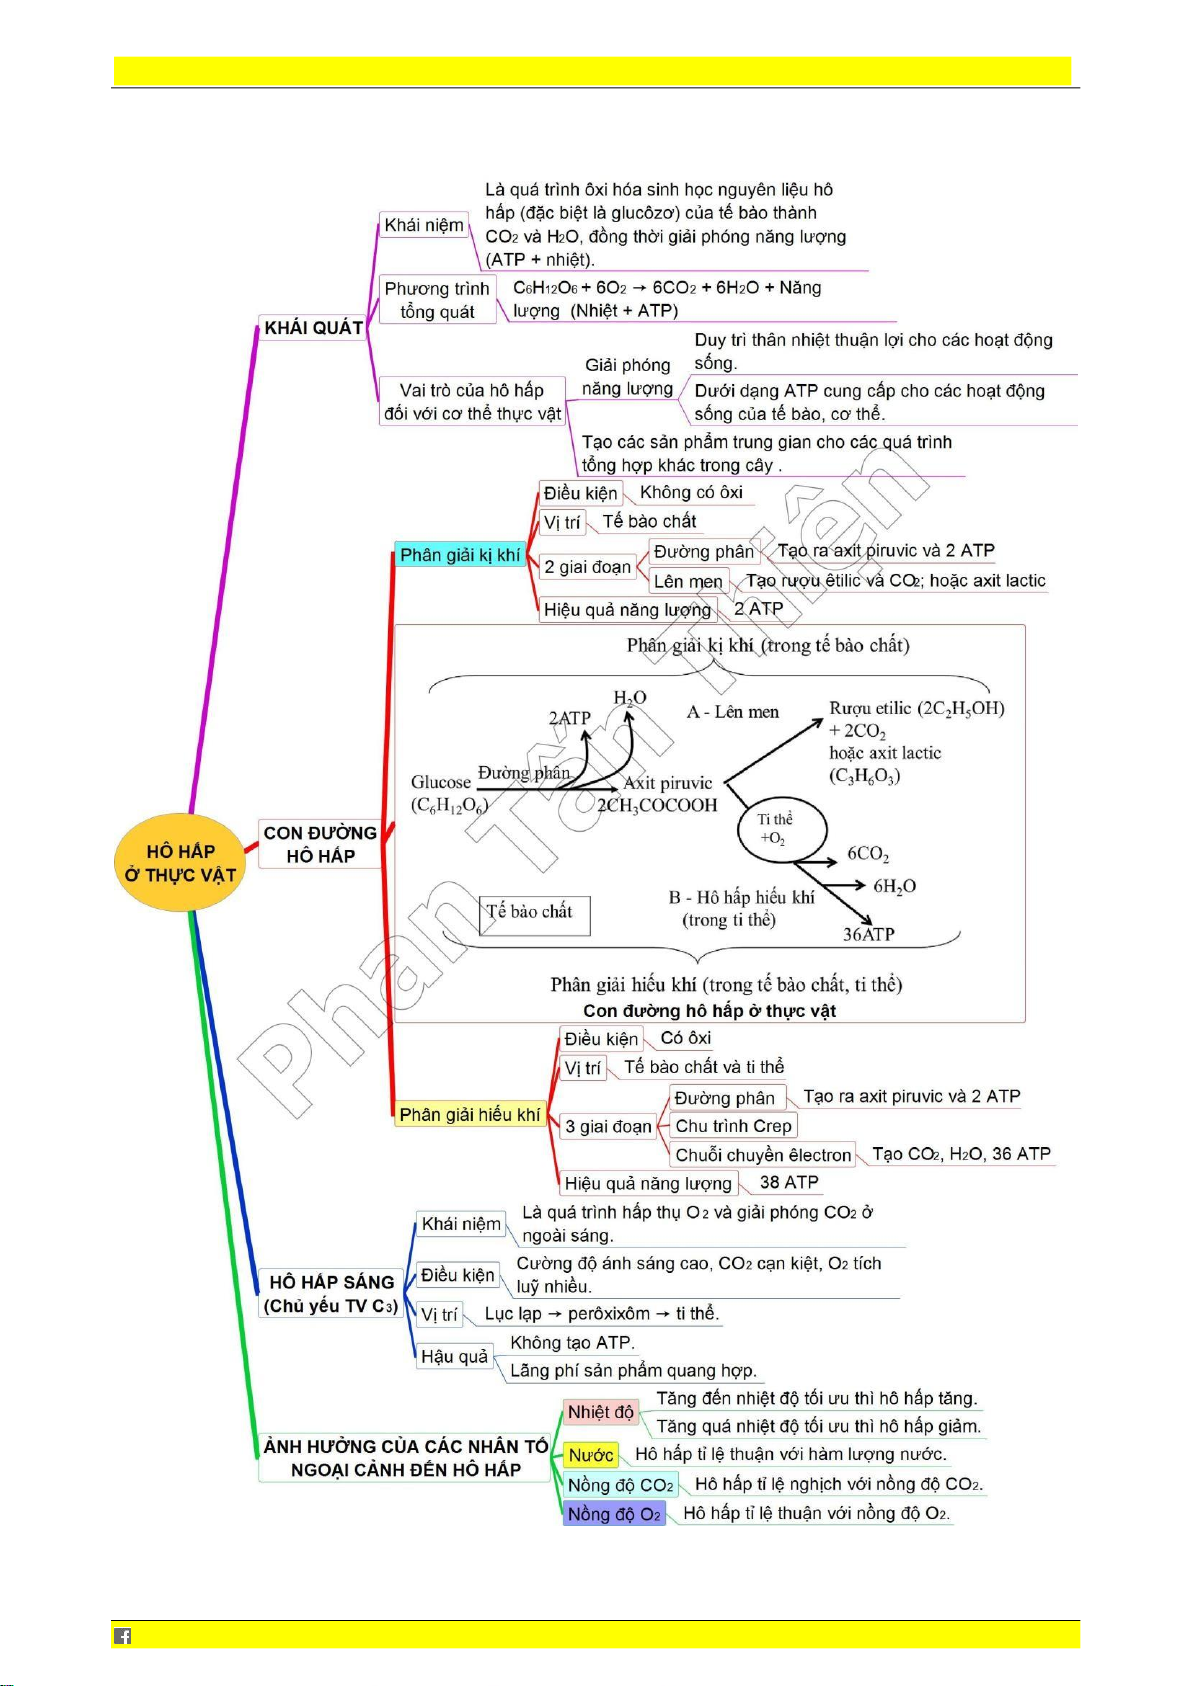 HÔ HẤP
Ở THỰC VẬT
KHÁI QUÁT
Khái niệm
Là quá trình ôxi hóa sinh học nguyên liệu hô
hấp (đặc biệt là glucôzơ) của tế bào thành
CO2 và H2O, đồng thời giải phóng năng lượng
(ATP + nhiệt).
Phương trình
tổng quát
C6H12O6 + 6O2 → 6CO2 + 6H2O + Năng
lượng (Nhiệt + ATP)
Vai trò của hô hấp
đối với cơ thể thực vật
Giải phóng
năng lượng
Duy trì thân nhiệt thuận lợi cho các hoạt động
sống.
Dưới dạng ATP cung cấp cho các hoạt động
sống của tế bào, cơ thể.
Tạo các sản phẩm trung gian cho các quá trình
tổng hợp khác trong cây .
CON ĐƯỜNG
HÔ HẤP
Phân giải kị khí
Điều kiện
Không có ôxi
Vị trí
Tế bào chất
2 giai đoạn
Đường phân
Tạo ra axit piruvic và 2 ATP
Lên men
Tạo rượu êtilic và CO2; hoặc axit lactic
Hiệu quả năng lượng
2 ATP
Phân giải kị khí (trong tế bào chất)
H2O
2ATP
A - Lên men
Rượu etilic (2C2H5OH)
+ 2CO2
hoặc axit lactic
(C3H6O3)
Glucose
(C6H12O6)
Đường phân
Axit piruvic
2CH3COCOOH
Ti thể
+O2
6CO2
6H2O
36ATP
B - Hô hấp hiếu khí
(trong ti thể)
Tế bào chất
Phân giải hiếu khí (trong tế bào chất, ti thể)
Con đường hô hấp ở thực vật
Phân giải hiếu khí
Điều kiện
Có ôxi
Vị trí
Tế bào chất và ti thể
3 giai đoạn
Đường phân
Tạo ra axit piruvic và 2 ATP
Chu trình Crep
Chuỗi chuyền êlectron
Tạo CO2, H2O, 36 ATP
Hiệu quả năng lượng
38 ATP
HÔ HẤP SÁNG
(Chủ yếu TV C3)
Khái niệm
Là quá trình hấp thụ O2 và giải phóng CO2 ở
ngoài sáng.
Điều kiện
Cường độ ánh sáng cao, CO2 cạn kiệt, O2 tích
luỹ nhiều.
Vị trí
Lục lạp → perôxixôm → ti thể.
Hậu quả
Không tạo ATP.
Lãng phí sản phẩm quang hợp.
ẢNH HƯỞNG CỦA CÁC NHÂN TỐ
NGOẠI CẢNH ĐẾN HÔ HẤP
Nhiệt độ
Tăng đến nhiệt độ tối ưu thì hô hấp tăng.
Tăng quá nhiệt độ tối ưu thì hô hấp giảm.
Nước
Hô hấp tỉ lệ thuận với hàm lượng nước.
Nồng độ CO2
Hô hấp tỉ lệ nghịch với nồng độ CO2.
Nồng độ O2
Hô hấp tỉ lệ thuận với nồng độ O2.
Phan Tấn Thiện